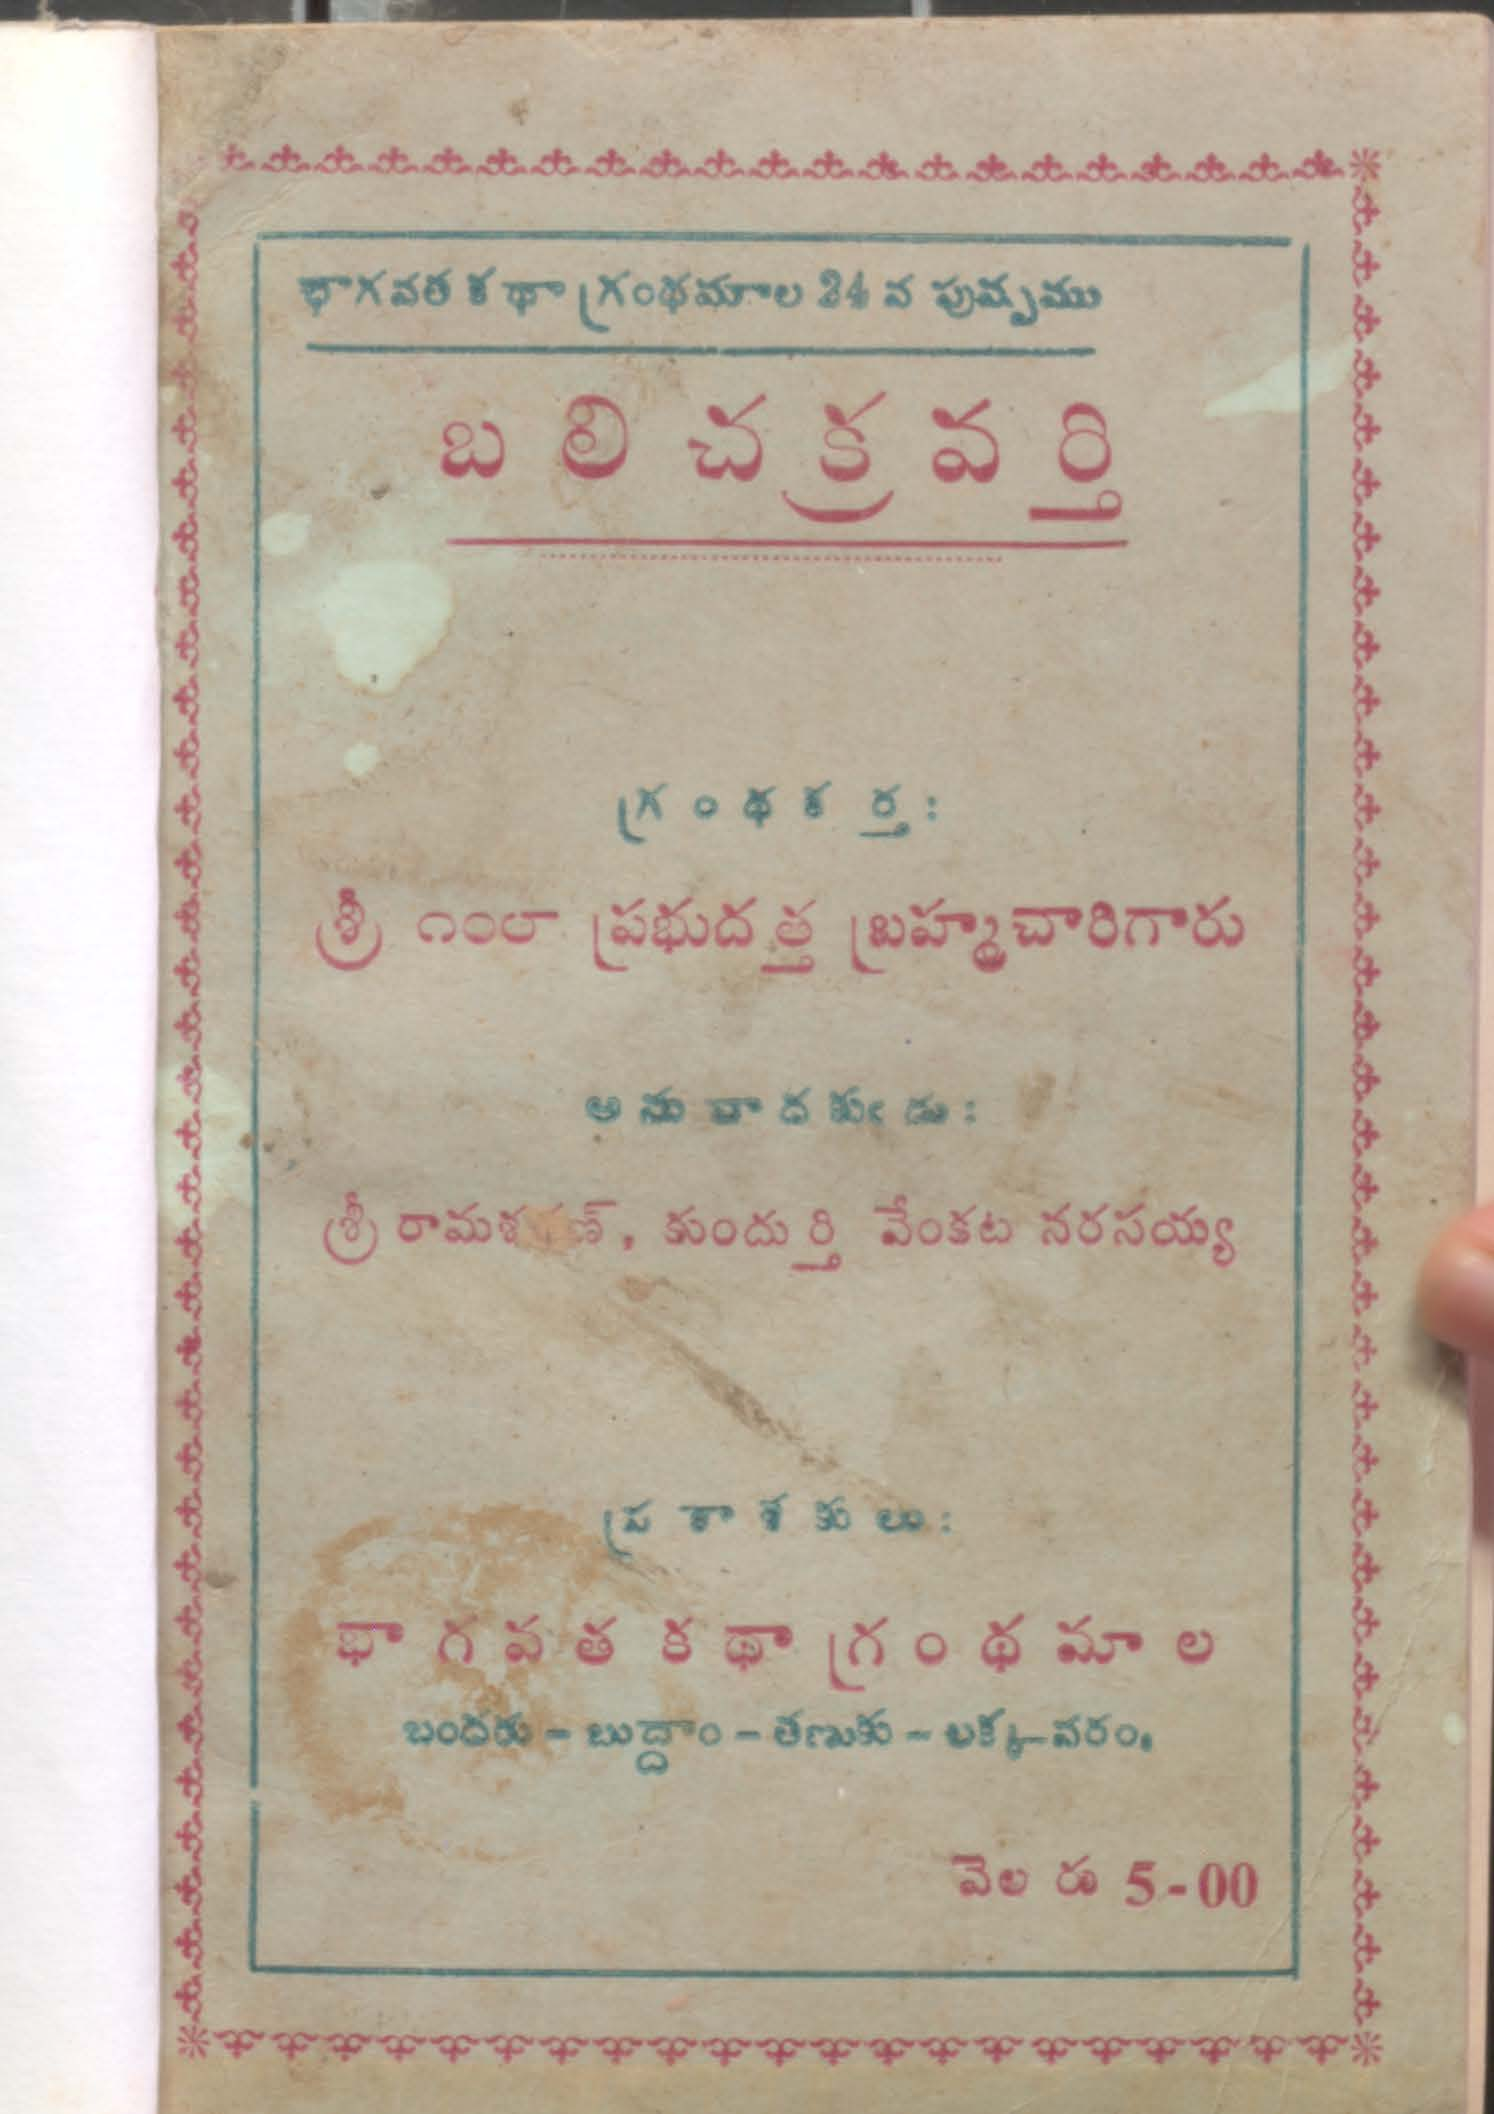 భాగవత కథా గ్రంథమాల 24 వ పుష్పము
బలిచక్రవర్తి
గ్రంథకర్త :
శ్రీ ౧౦౮ ప్రభుదత్త బ్రహ్మచారిగారు
అనువాదకుఁడు :
శ్రీ రామశరణ్, కుందుర్తి వేంకట నరసయ్య
ప్రకాశకులు :
భాగవత కథా గ్రంథమాల
బందరు – బుద్దాం – తణుకు – లక్కవరం.
వెల రు 5-00